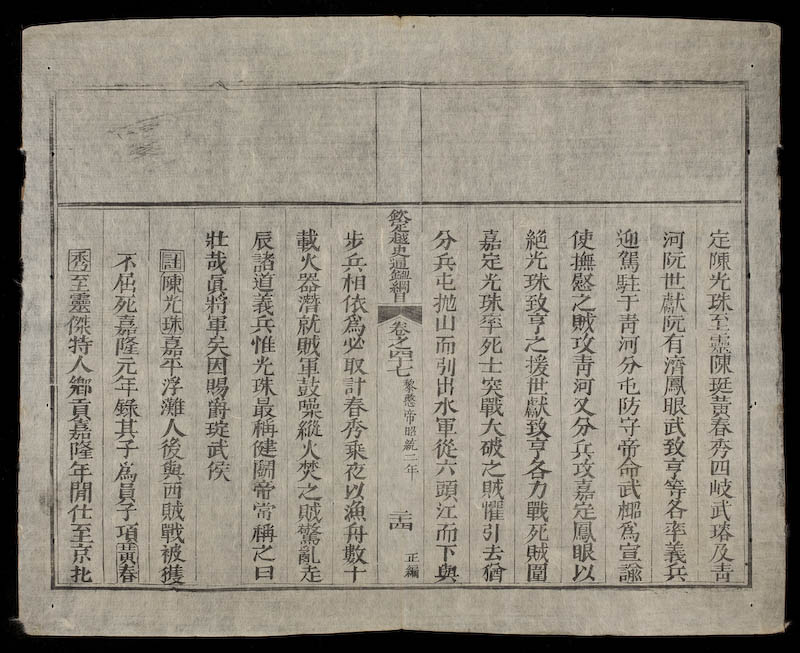 定陳光珠至靈陳珽黃春秀四岐武璿及青
河阮世獻阮有濟鳳眼武致亨等各率義兵
迎駕駐于青河分屯防守帝命武樬為宣諭
使撫慰之賊攻青河又分兵攻嘉定鳳眼以
絕光珠致亨之援世獻致亨各力戰死賊圍
嘉定光珠率死士突戰大破之賊懼引去猶
分兵屯拋山而引出水軍從六頭江而下與
欽定越史通鑑綱目 卷之四十七 黎愍帝昭統二年 二十四 正編
步兵相依為必取計春秀乘夜以漁舟數十
載火器潛就賊軍鼓噪縱火焚之賊驚亂走
辰諸道義兵惟光珠最稱健鬬帝常稱之曰
壯哉眞將軍矣因賜爵珽武侯
註陳光珠嘉平浮灘人後與西賊戰被獲
不屈死嘉隆元年錄其子為員子項黃春
秀至靈傑特人鄉貢嘉隆年閒仕至京北